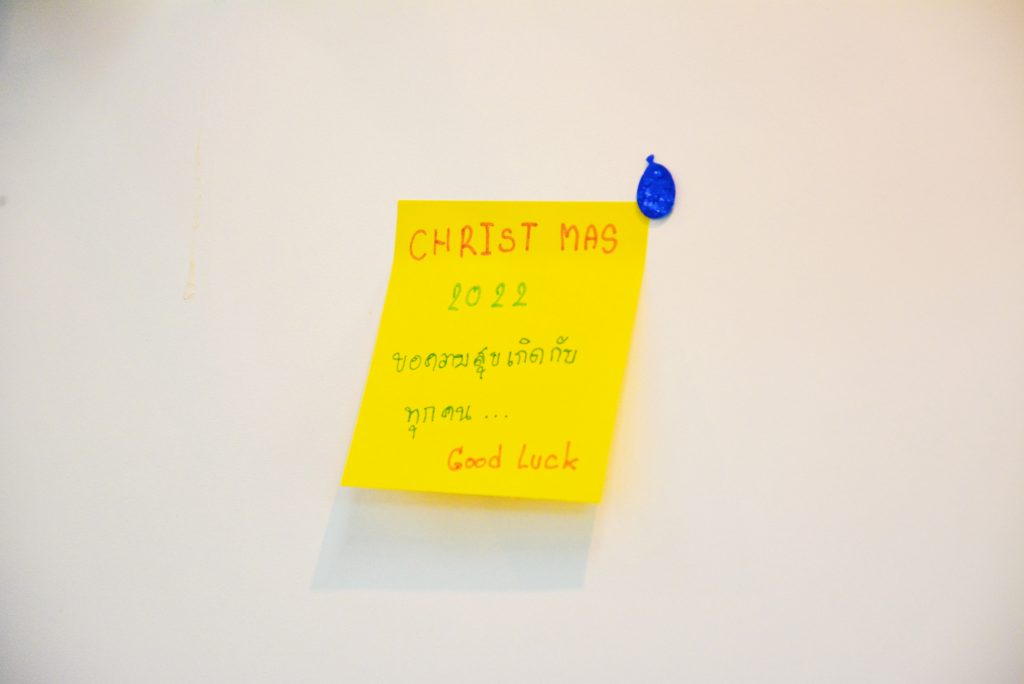 CHRIST MAS
2022
ขอความสุขเกิดกับ
ทุกคน ...
Good Luck